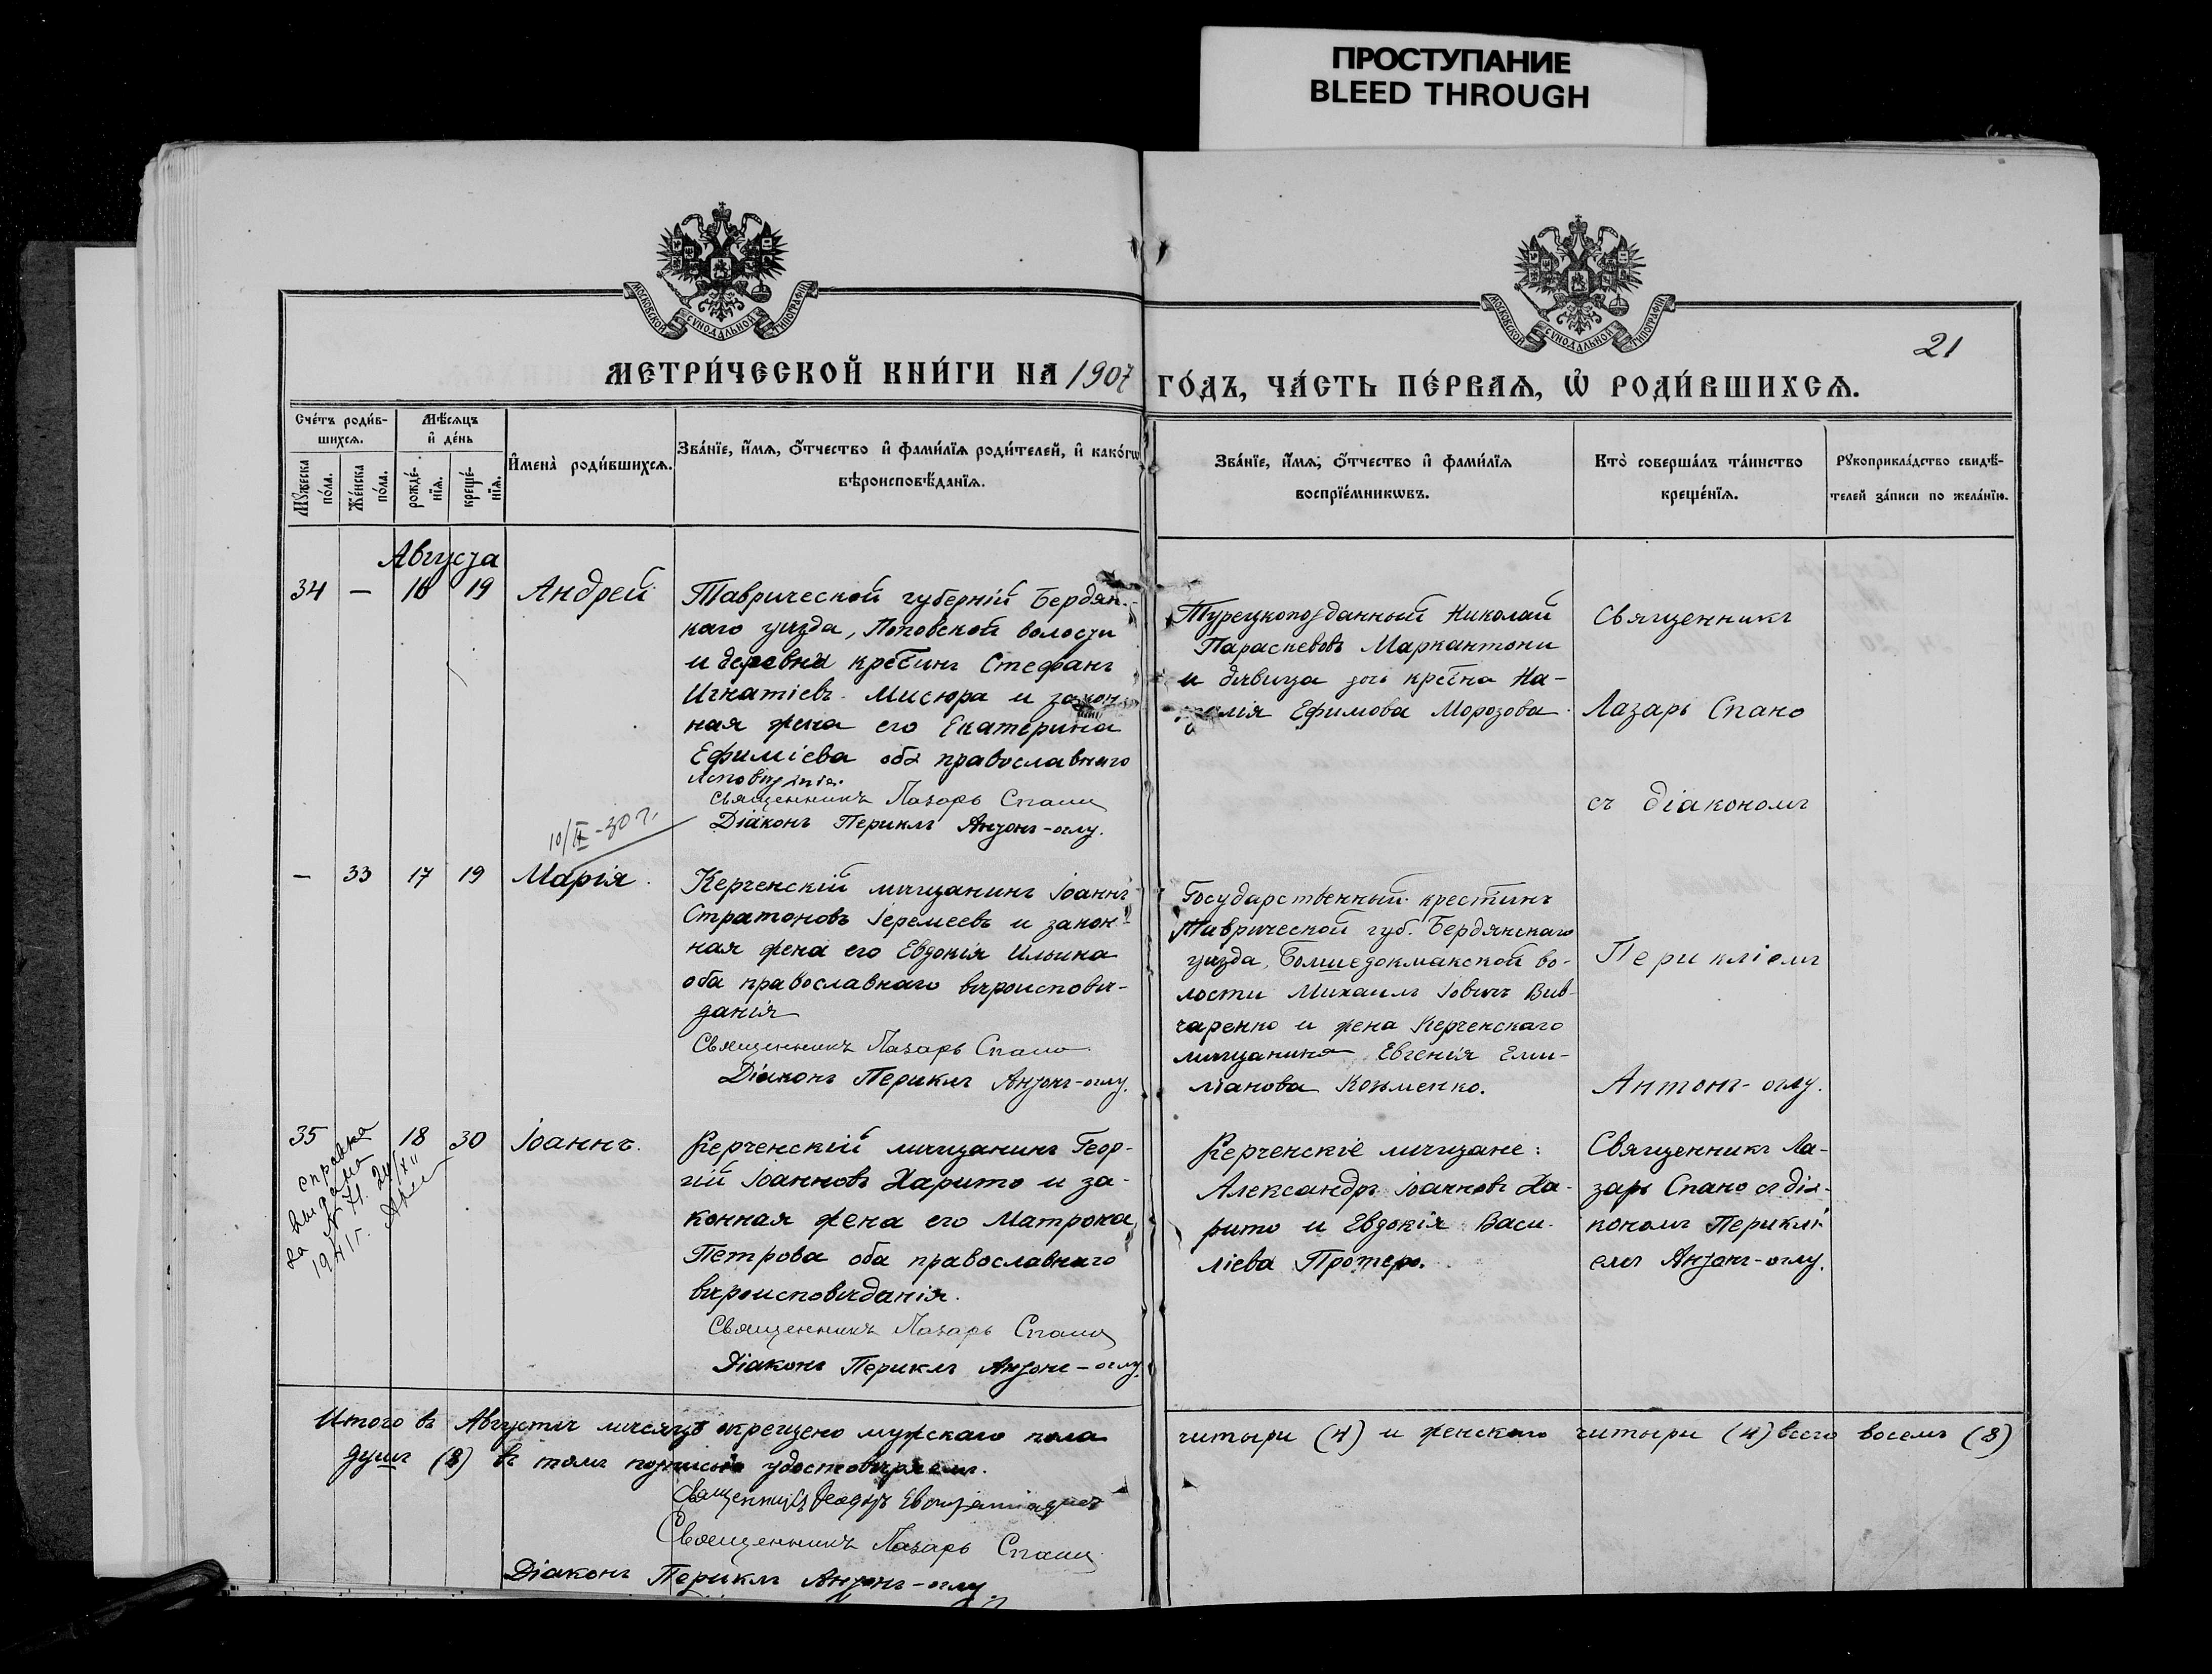 ПРОСТУПАНИЕ
BLEED THROUGH
МОСКОВСКОЙ СѴНОДАЛЬНОЙ ТИПОГРАФІИ
МОСКОВСКОЙ СѴНОДАЛЬНОЙ ТИПОГРАФІИ
21
МЕТРИ́ЧЕСКОЙ КНИ́ГИ НА 1907
ГО́ДЪ, ЧА́СТЬ ПЕ́РВАѦ, Ѡ҆ РОДИ́ВШИХСѦ.
Сче́тъ роди́в-
шихсѧ.
Мѣ́сѧцъ
и҆ де́нь
Мꙋ́жеска
по́ла.
Же́нска
по́ла.
рожде́-
нїѧ.
креще́-
нїѧ.
И҆мена̀ роди́вшихсѧ.
Зва́нїе, и҆́мѧ, ѻ҆́тчество и҆ фами́лїѧ роди́телей, и҆ како́гѡ
вѣроисповѣ́данїѧ.
Зва́нїе, и҆́мѧ, ѻ҆́тчество и҆ фами́лїѧ
воспрїе́мникѡвъ.
Кто̀ соверша́лъ та́инство
креще́нїѧ.
Рꙋкоприкла́дство свидѣ́-
телей за́писи по жела́нїю.
Августа
34 — 16 19 Андрей
Таврической губерніи Бердян-
каго уѣзда, Поповской волости
и деревни кре­стинъ Стефанъ
Игнатіевъ Мисюра и закон-
ная жена его Екатерина
Ефиміева оба православнаго
исповѣданія.
Священникъ Лазарь Спано
Діаконъ Периклъ Антонъ-оглу.
Турецкоподданный Николай
Параскевовъ Маркантони
и дѣвица дочь крес­тна На-
талія Ефимова Морозова
Священникъ
Лазарь Спано
съ діакономъ
10/II-30 г.
— 33 17 19 Марія.
Керченскій мѣщанинъ Іоаннъ
Стратоновъ Іеремеевъ и закон-
ная жена его Евдокія Ильина
оба православнаго вѣроисповѣ-
данія
Священникъ Лазарь Спано
Діаконъ Периклъ Антонъ-оглу.
Государственный крестинъ
Таврической губ. Бердянскаго
уѣзда, Большедокмакской во-
лости Михаилъ Іовичъ Вив-
чаренко и жена Керченскаго
мѣщанина Евгенія Еми-
ліанова Козьменко.
Перикліемъ
Антонъ-оглу.
35 18 30 Іоаннъ.
справка
выдана
за № 71. 24/XII
1941 г.
Керченскій мѣщанинъ Геор-
гій Іоанновъ Харито и за-
конная жена его Матрона
Петрова оба православнаго
вѣроисповѣданія.
Священникъ Лазарь Спано
Діаконъ Периклъ Антонъ-оглу.
Керченскіе мѣщане:
Александръ Іоанновъ Ха-
рито и Евдокія Васи-
ліева Протеро.
Священникъ Ла-
зарь Спано съ діа-
кономъ Периклі-
емъ Антонъ-оглу.
Итого въ Августѣ мѣсяцѣ окрещено мужскаго пола
четыри (4) и женскаго четыри (4) всего восемь (8)
душъ (8) въ томъ подписью удостовѣряемъ.
Священникъ
Священникъ Лазарь Спано
Діаконъ Периклъ Антонъ-оглу.